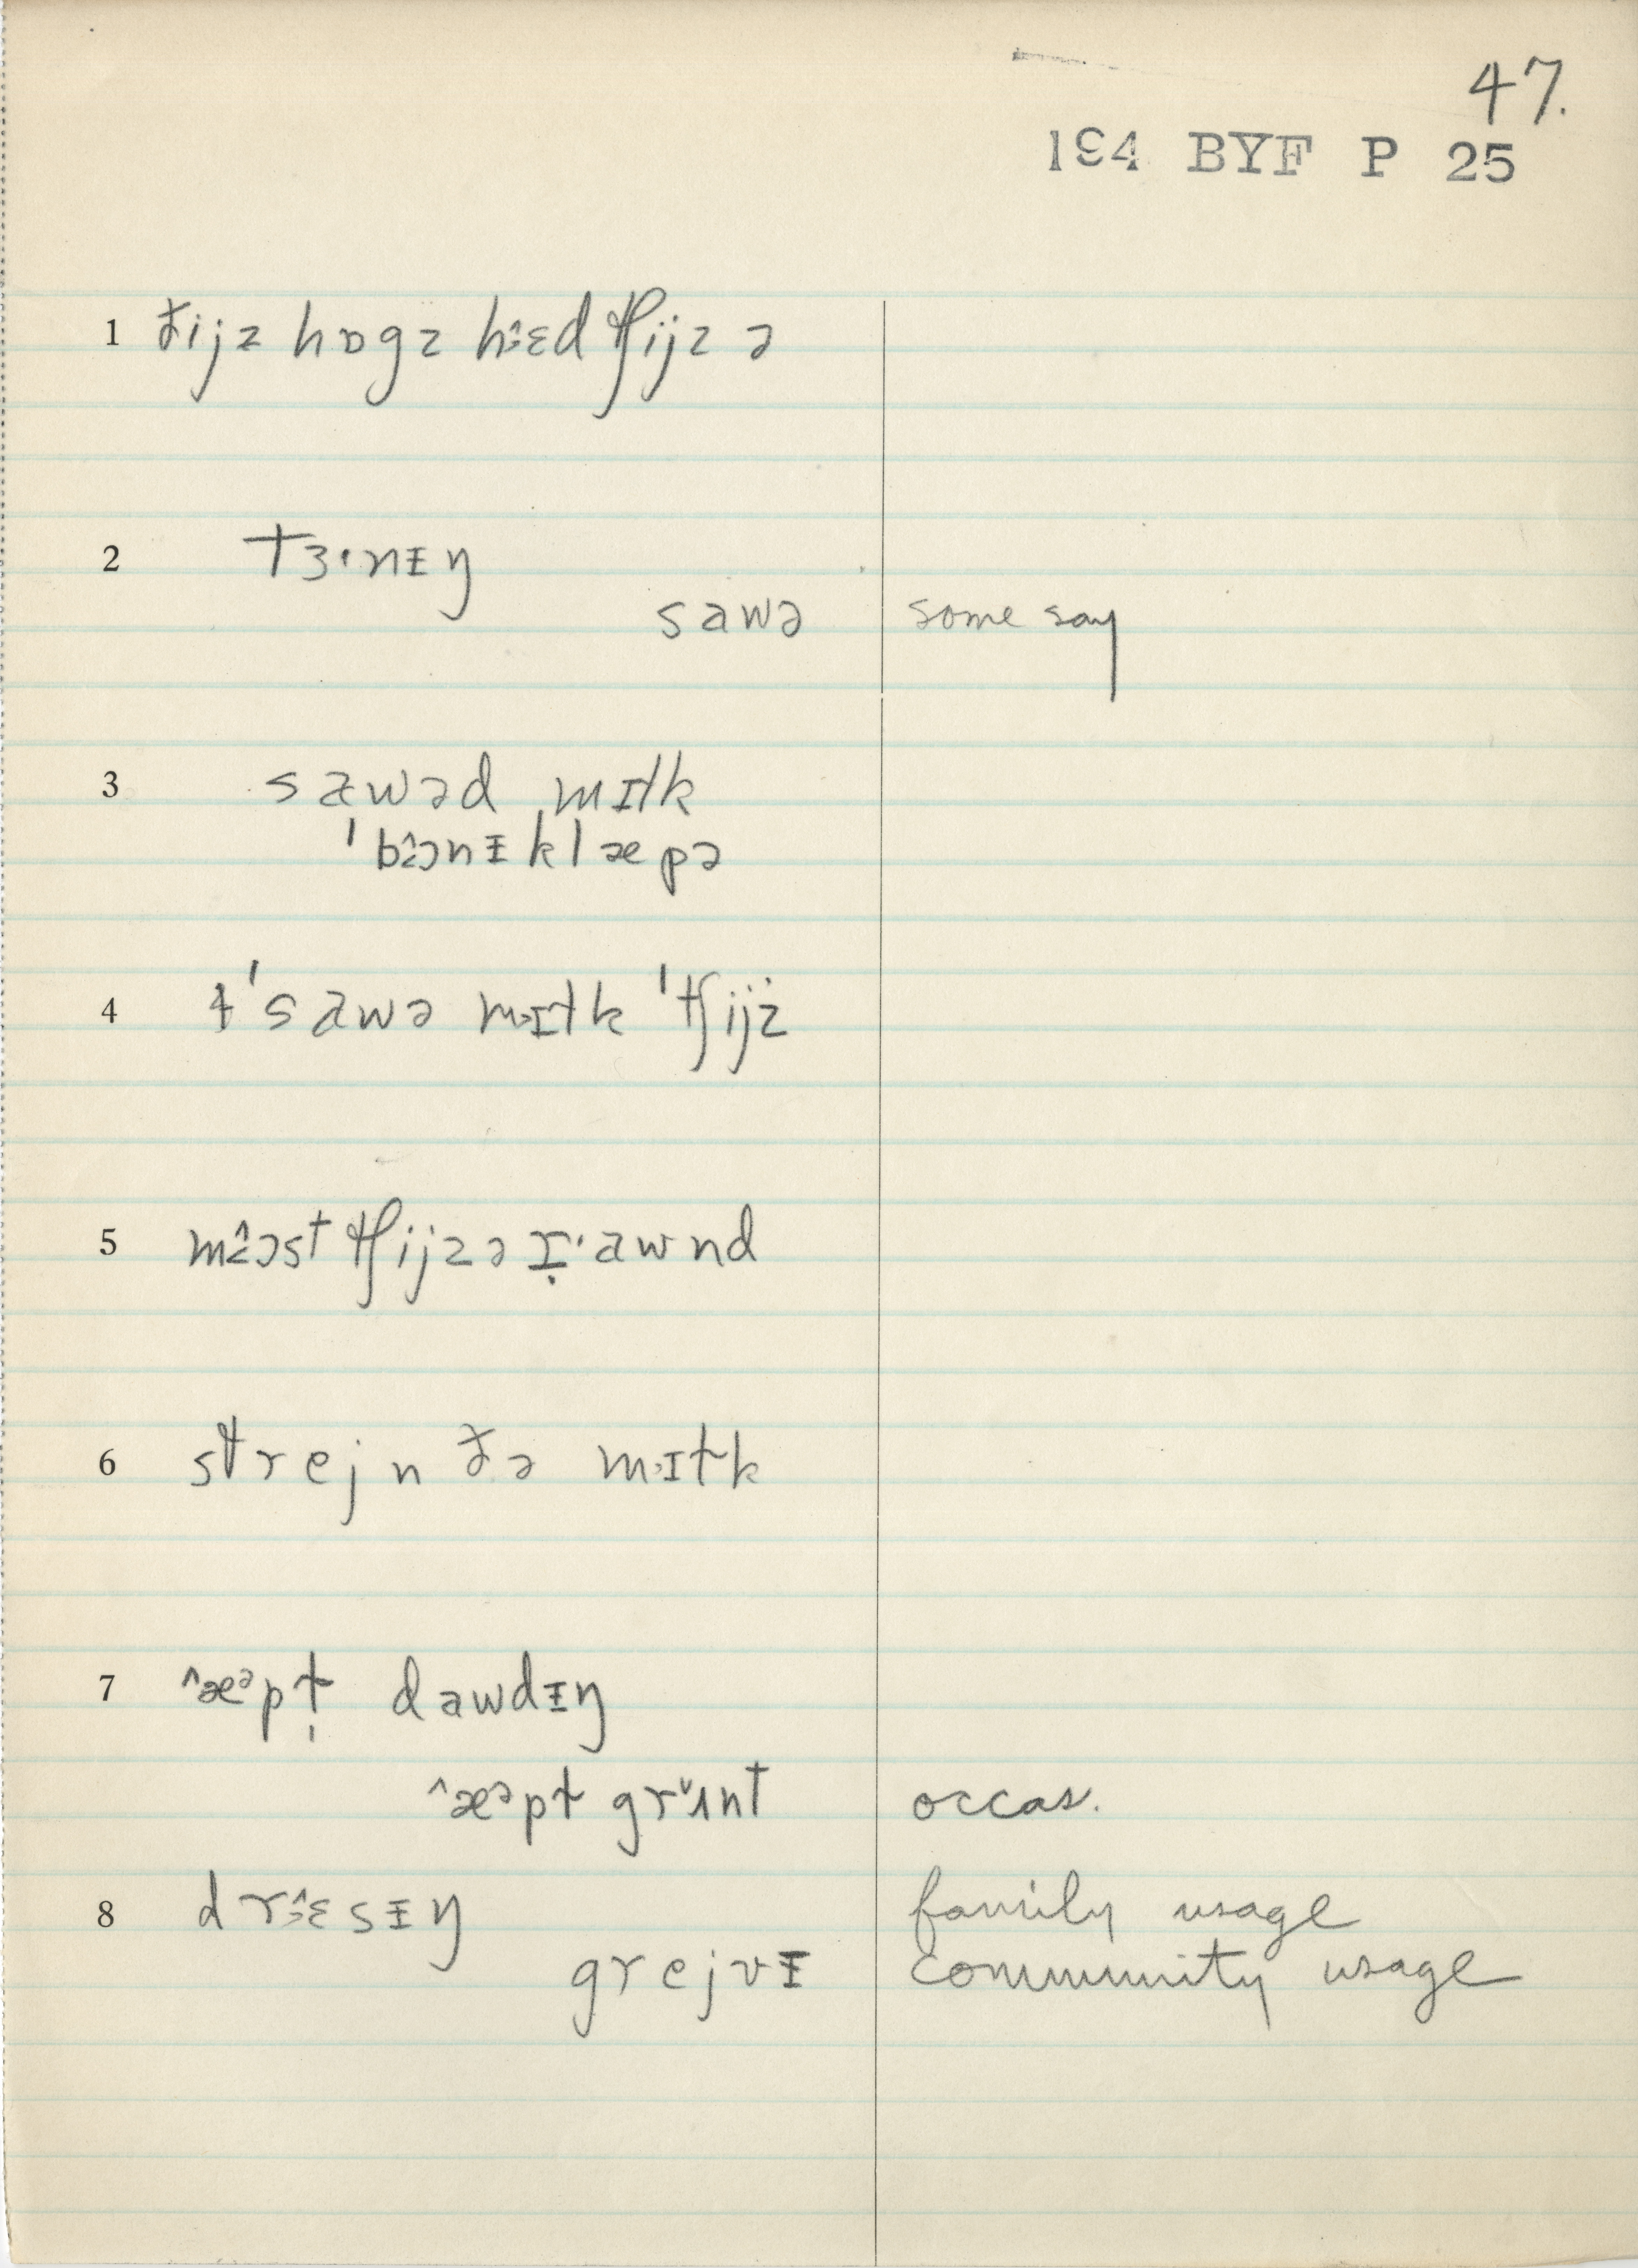 47.
194 BYF P 25
1 ðijz hɒgz hɛ̂ɛd tʃijz ə
2 tɜ·nɪ̵ŋ
sawə some say
3 sawəd mɪɫk
ˈbɔ̂ɔnɪ̵klæpə
4 ɫˈsawə mɪɫk ˈtʃijz
5 mɔ̂ɔst tʃijzə ɪ̣·awnd
6 strejn ðə mɪɫk
7 ˆæᵊpɫ̩ dawdɪ̵ŋ
ˆæᵊpɫ grʌnt occas.
8 drɛ̂ɛsɪ̵ŋ family usage
grejvɪ̵ community usage